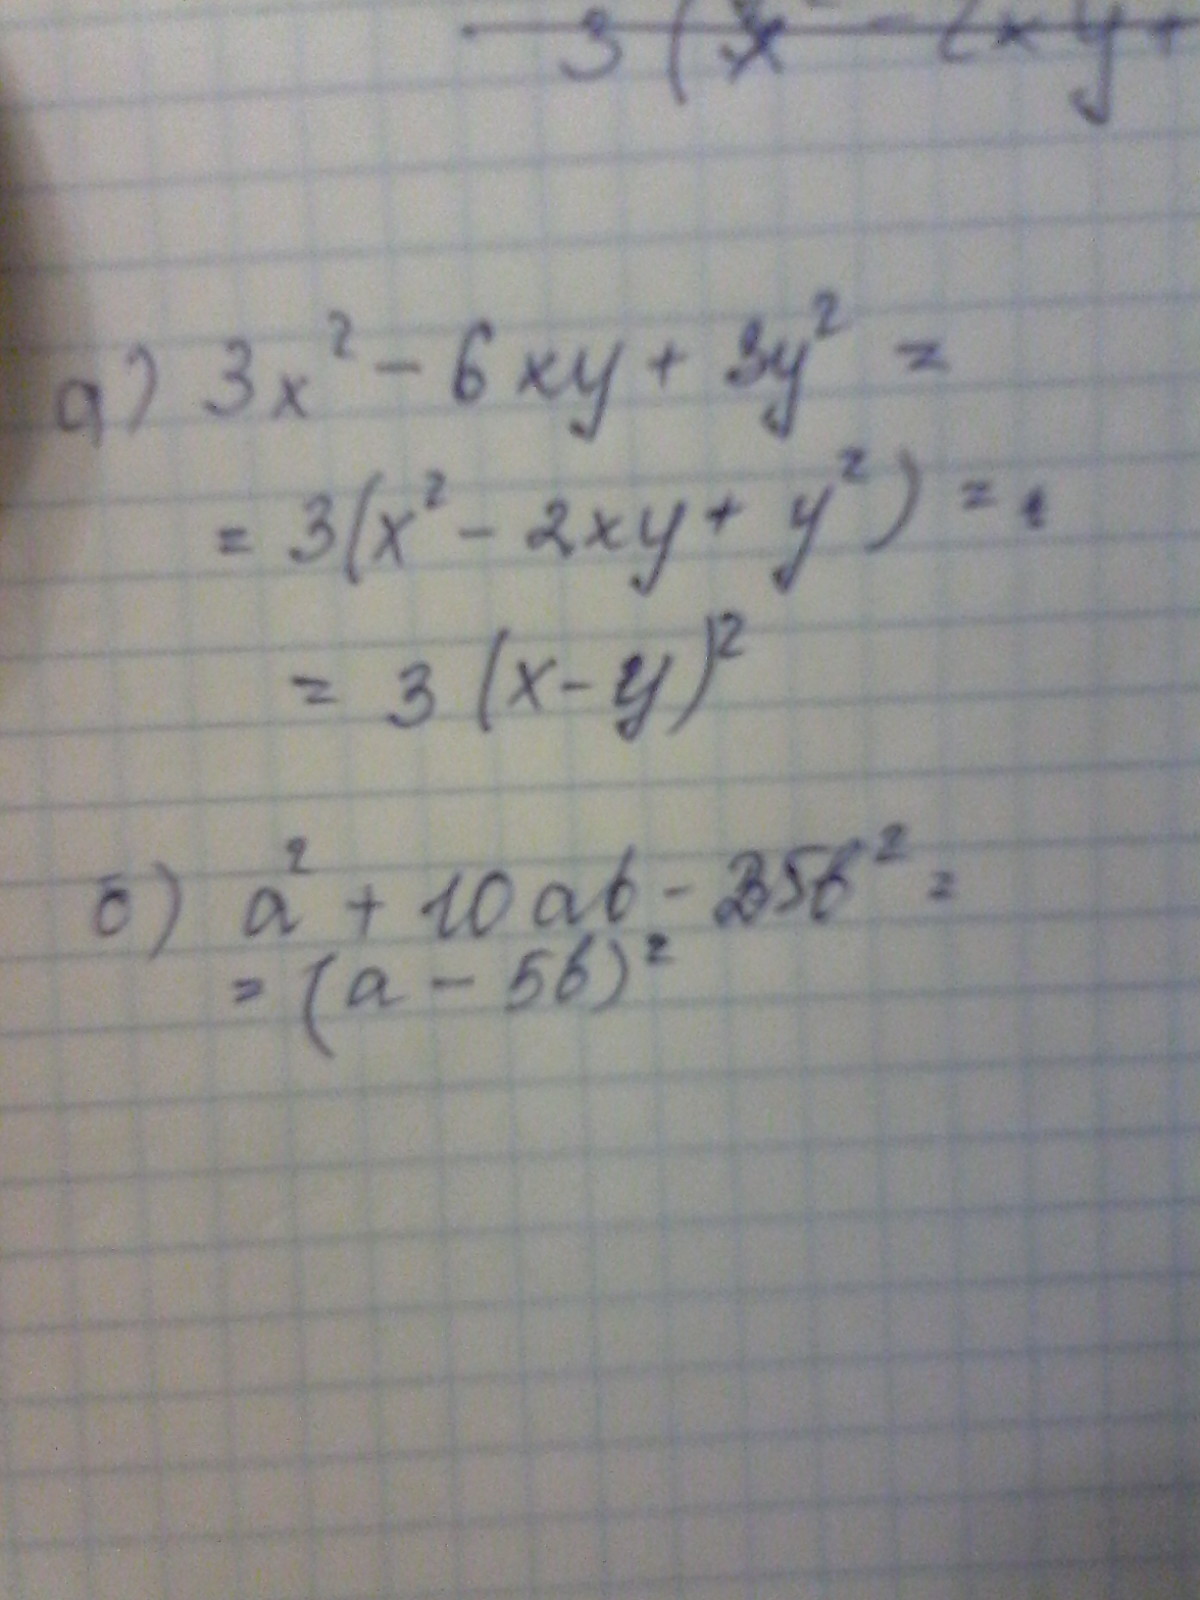 3(x² - 2xy+
а) 3x² - 6xy + 3y² =
= 3(x² - 2xy + y²) =
= 3(x-y)²
б) a² + 10ab - 25b² =
= (a - 5b)²